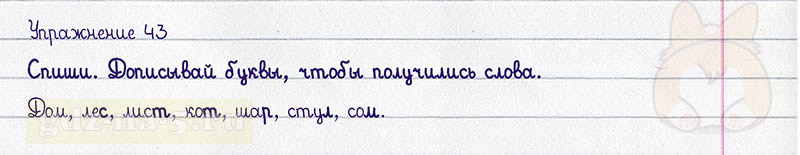 Упражнение 43
Спиши. Дописывай буквы, чтобы получились слова.
Дом, лес, лист, кот, шар, стул, сом.
gdz-na-5.ru